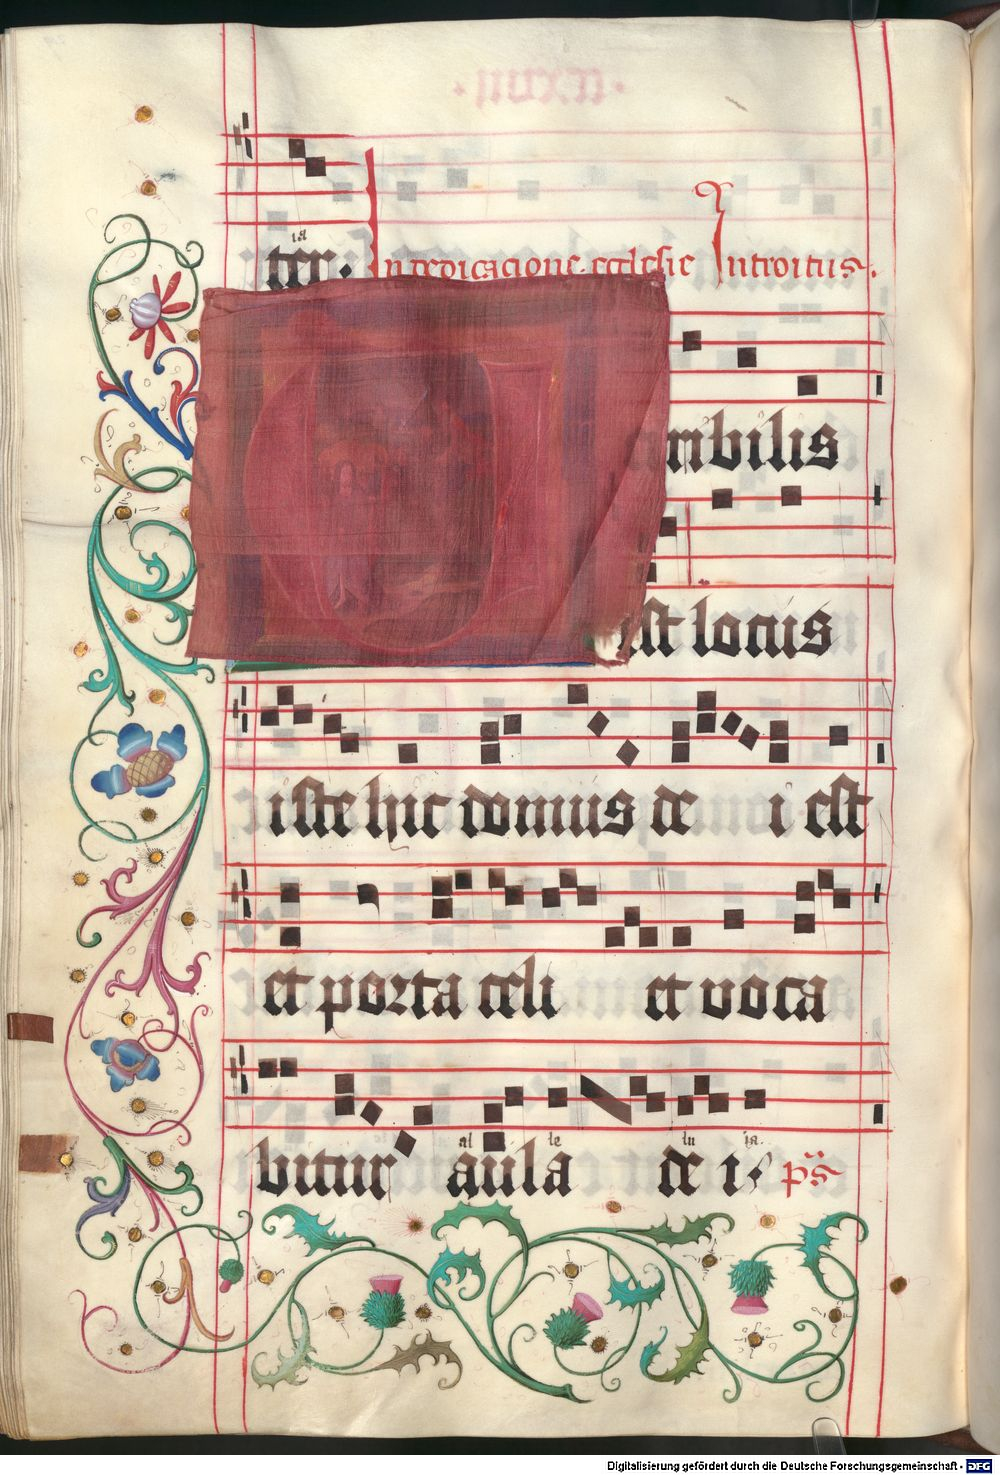 ia
ter. In dedicacione ecclesie Introitus.
mbilis
est locus
iste hic domus de i est
et porta celi et voca
al le lu ia.
bitur aula de i p̄s
Digitalisierung gefördert durch die Deutsche Forschungsgemeinschaft - DFG